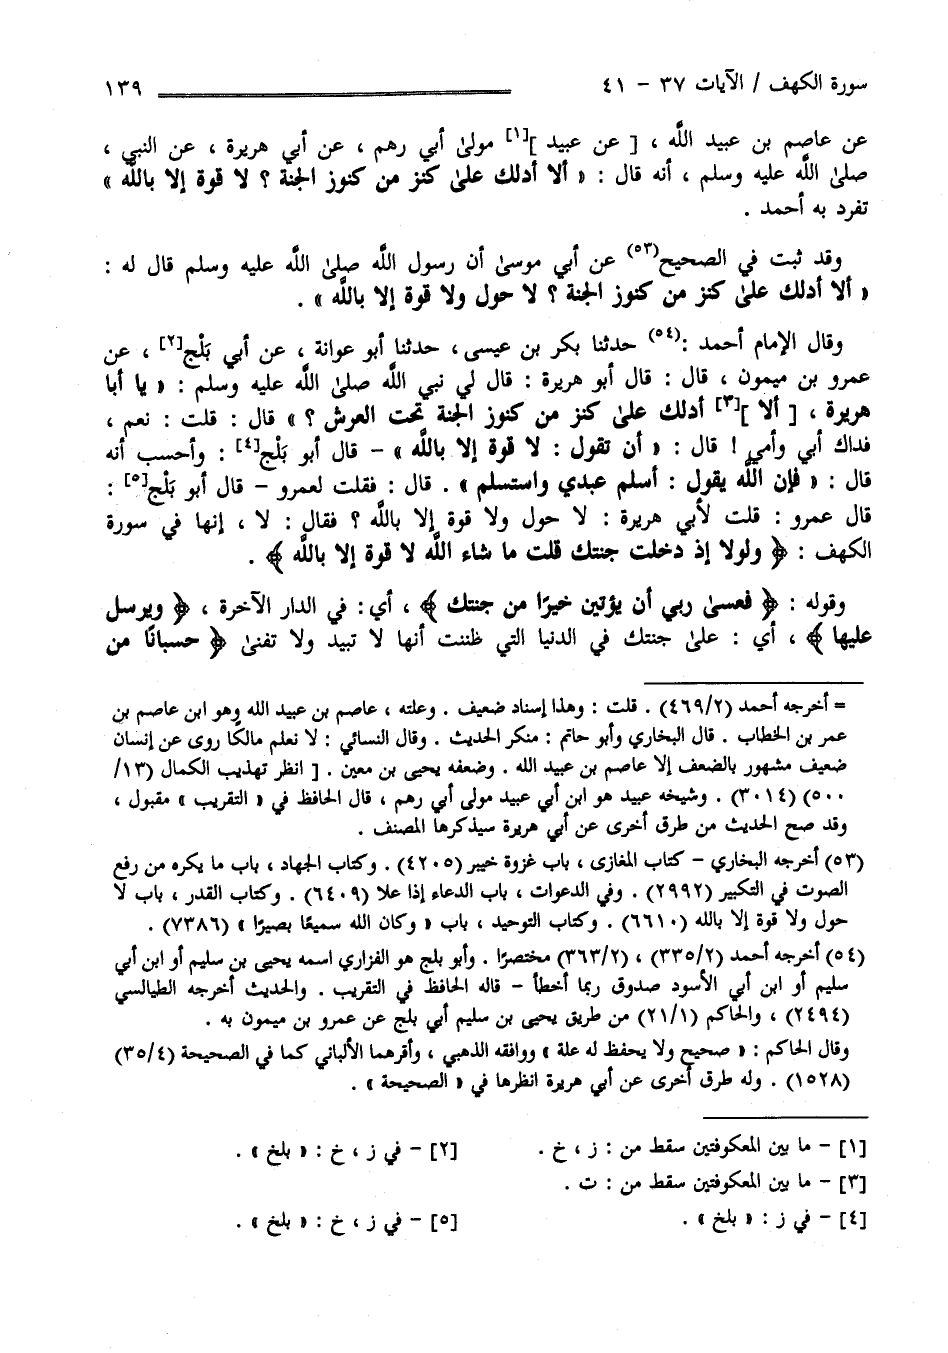 سورة الكهف / الآيات ٣٧ - ٤١ ١٣٩
عن عاصم بن عبيد اللَّه ، [ عن عبيد ][١] مولىٰ أبي رهم ، عن أبي هريرة ، عن النبي ،
صلىٰ اللَّه عليه وسلم ، أنه قال : « ألا أدلك علىٰ كنز من كنوز الجنة ؟ لا قوة إلا باللَّه »
تفرد به أحمد .
وقد ثبت في الصحيح(٥٣) عن أبي موسىٰ أن رسول اللَّه صلىٰ اللَّه عليه وسلم قال له :
« ألا أدلك علىٰ كنز من كنوز الجنة ؟ لا حول ولا قوة إلا باللَّه » .
وقال الإمام أحمد :(٥٤) حدثنا بكر بن عيسى، حدثنا أبو عوانة ، عن أبي بَلْج[٢] ، عن
عمرو بن ميمون ، قال : قال أبو هريرة : قال لي نبي اللَّه صلىٰ اللَّه عليه وسلم : « يا أبا
هريرة ، [ ألا ][٣] أدلك علىٰ كنز من كنوز الجنة تحت العرش ؟ » قال : قلت : نعم ،
فداك أبي وأمي ! قال : « أن تقول : لا قوة إلا باللَّه » - قال أبو بَلْج[٤] : وأحسب أنه
قال : « فإن اللَّه يقول : أسلم عبدي واستسلم » . قال : فقلت لعمرو - قال أبو بَلْج[٥] :
قال عمرو : قلت لأبي هريرة : لا حول ولا قوة إلا باللَّه ؟ فقال : لا ، إنها في سورة
الكهف : ﴿ ولولا إذ دخلت جنتك قلت ما شاء اللَّه لا قوة إلا باللَّه ﴾ .
وقوله : ﴿ فعسىٰ ربي أن يؤتين خيرًا من جنتك ﴾ ، أي: في الدار الآخرة ، ﴿ ويرسل
عليها ﴾ ، أي : علىٰ جنتك في الدنيا التي ظننت أنها لا تبيد ولا تفنىٰ ﴿ حسبانًا من
= أخرجه أحمد (٤٦٩/٢) . قلت : وهذا إسناد ضعيف . وعلته ، عاصم بن عبيد الله وهو ابن عاصم بن
عمر بن الخطاب . قال البخاري وأبو حاتم : منكر الحديث . وقال النسائي : لا نعلم مالكًا روى عن إنسان
ضعيف مشهور بالضعف إلا عاصم بن عبيد الله . وضعفه يحيى بن معين . [ انظر تهذيب الكمال (١٣/
٥٠٠) (٣٠١٤) . وشيخه عبيد هو ابن أبي عبيد مولى أبي رهم ، قال الحافظ في « التقريب » مقبول ،
وقد صح الحديث من طرق أخرى عن أبي هريرة سيذكرها المصنف .
(٥٣) أخرجه البخاري - كتاب المغازى ، باب غزوة خيبر (٤٢٠٥) . وكتاب الجهاد ، باب ما يكره من رفع
الصوت في التكبير (٢٩٩٢) . وفي الدعوات ، باب الدعاء إذا علا (٦٤٠٩) . وكتاب القدر ، باب لا
حول ولا قوة إلا بالله (٦٦١٠) . وكتاب التوحيد ، باب « وكان الله سميعًا بصيرًا » (٧٣٨٦) .
(٥٤) أخرجه أحمد (٣٣٥/٢) ، (٣٦٣/٢) مختصرًا . وأبو بلج هو الفزاري اسمه يحيى بن سليم أو ابن أبي
سليم أو ابن أبي الأسود صدوق ربما أخطأ - قاله الحافظ في التقريب . والحديث أخرجه الطيالسي
(٢٤٩٤) ، والحاكم (٢١/١) من طريق يحيى بن سليم أبي بلج عن عمرو بن ميمون به .
وقال الحاكم : « صحيح ولا يحفظ له علة » ووافقه الذهبي ، وأقرهما الألباني كما في الصحيحة (٣٥/٤)
(١٥٢٨) . وله طرق أخرى عن أبي هريرة انظرها في « الصحيحة » .
[١] - ما بين المعكوفتين سقط من : ز ، خ . [٢] - في ز ، خ : « بلخ » .
[٣] - ما بين المعكوفتين سقط من : ت .
[٤] - في ز : « بلخ » . [٥] - في ز ، خ : « بلخ » .